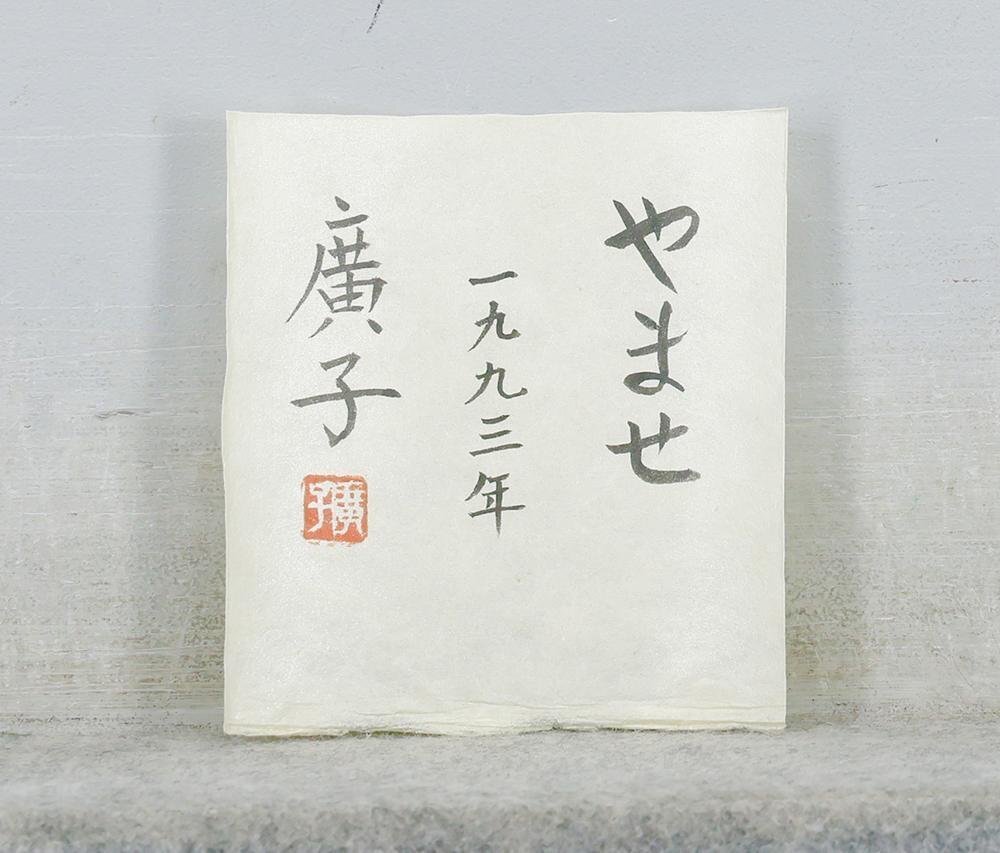 やませ
一九九三年
廣子
廣子